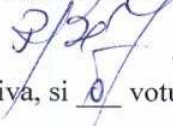 iva, si 0 votu